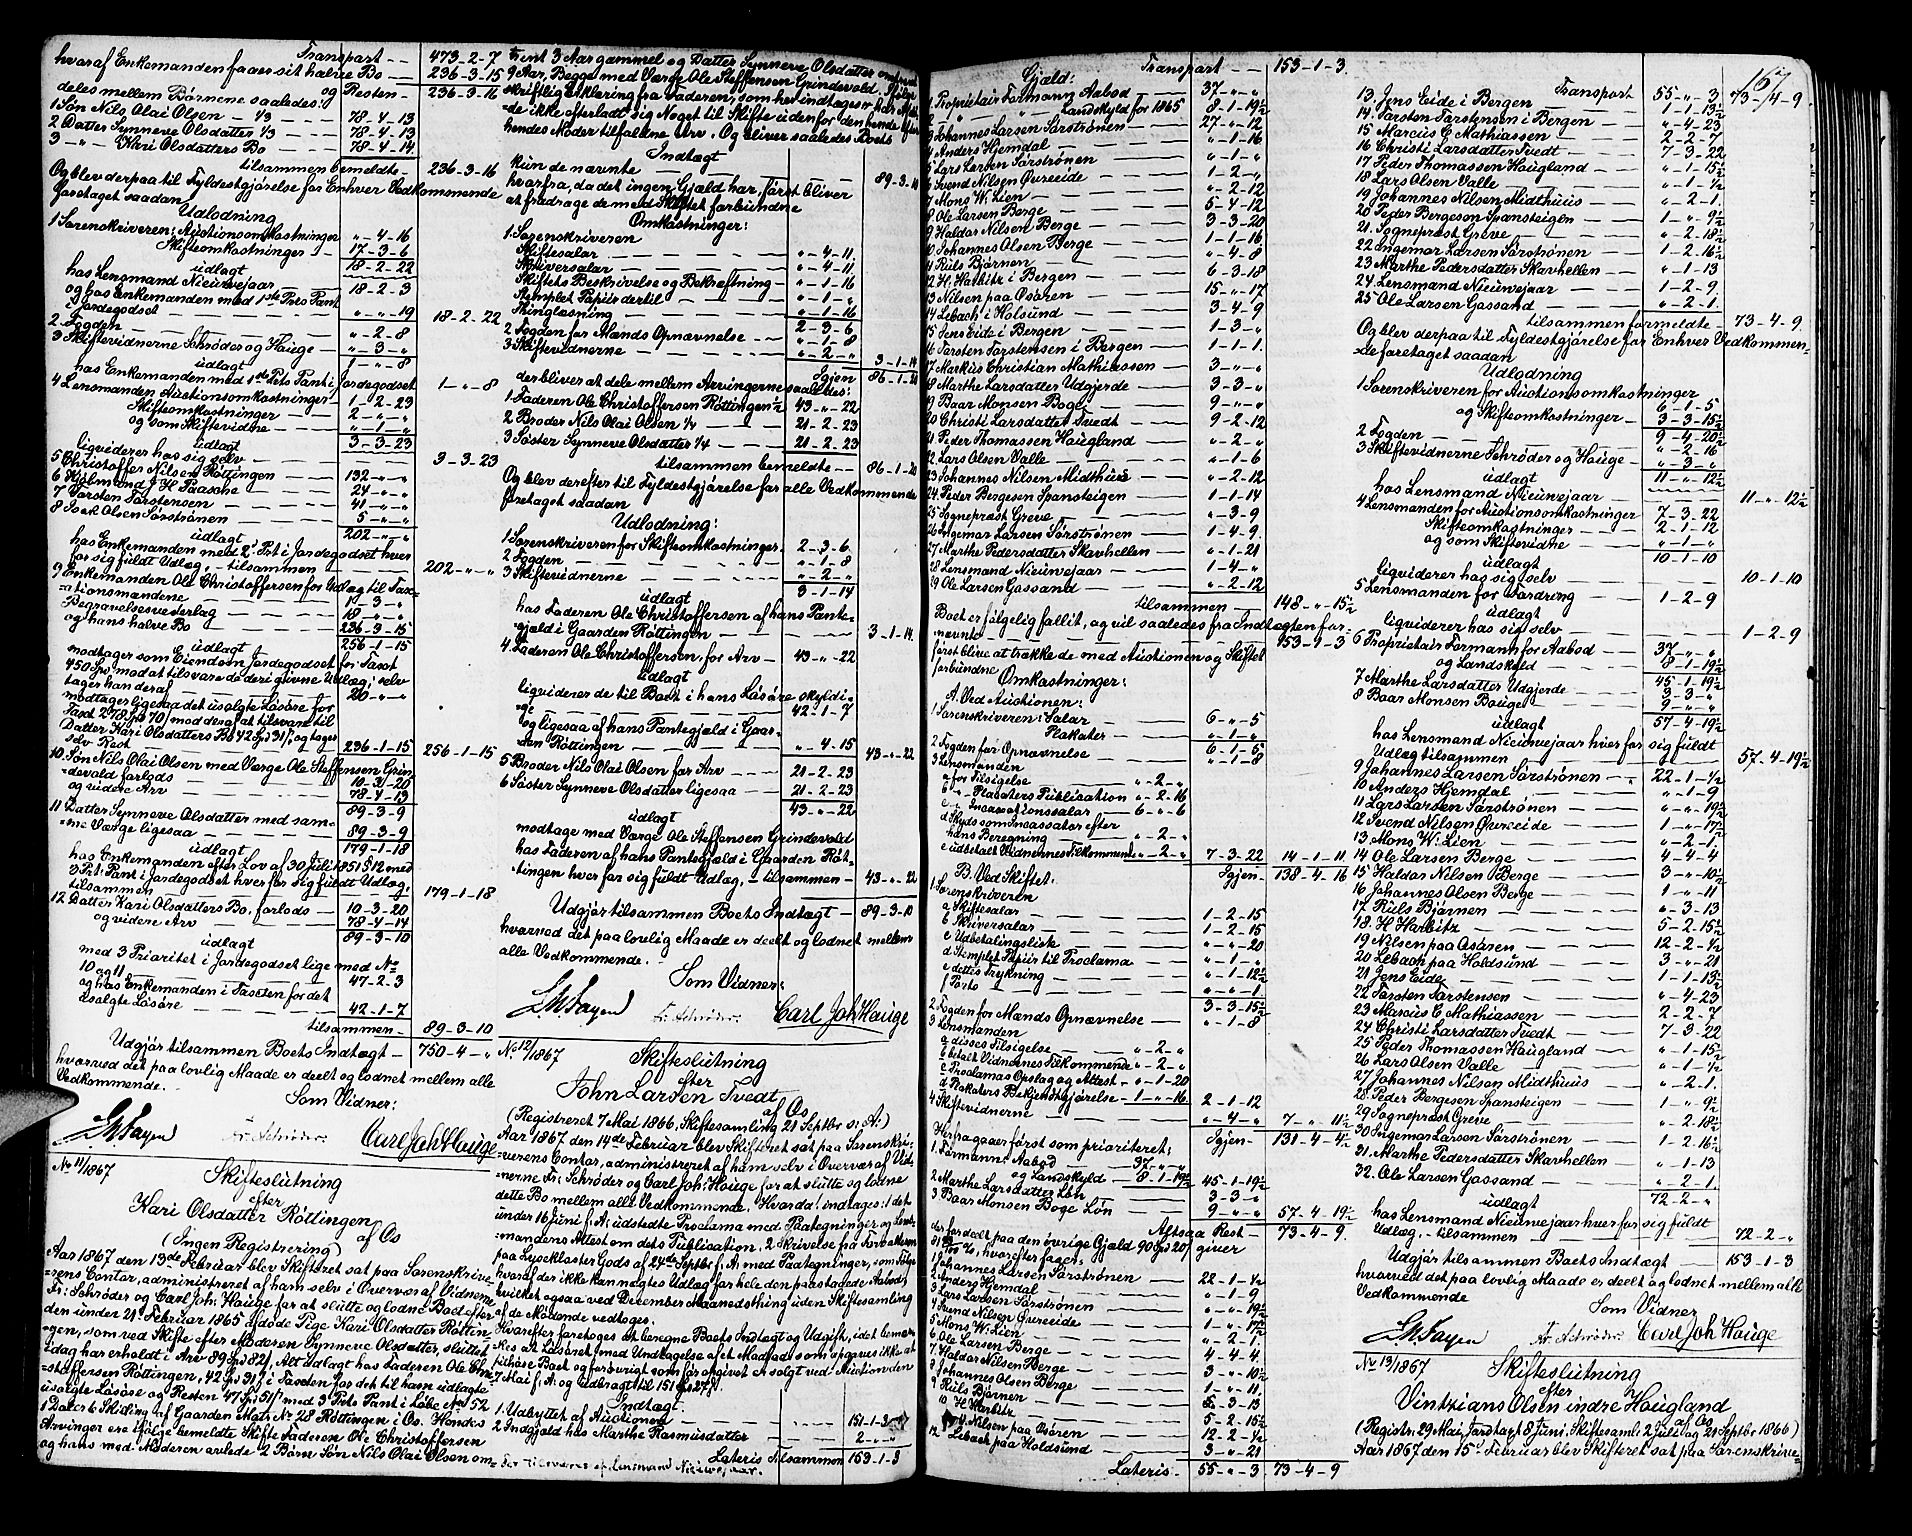 Transport -- 473-2-7
hvoraf Enkemanden faaer sit halve Bo -- 236-3-15
og Resten - 236-3-16
deles mellem Børnene saaledes:
1 Søn Nils Olai Olsen - 1/3 -- 78-4-13
2 Datter Synneve Olsdatter 1/3 -- 78-4-13
3 -"- Kari Olsdatters Bo -- 78-4-14
tilsammen bemeldte - 236-3-16
Og blev derpaa til Fyldestgjørelse for Enhver Vedkommende
foretaget saadan
Udlodning
1 Sorenskriveren: Auctionsomkostninger "-4-16
Skifteomkostninger 17-3-6
udlagt 18-2-22
hos Lensmand Nieuwejaar -- 18-2-3
og hos Enkemanden med 1ste Prts Pant
i Jordegodset -- "-"-19 18-2-22
2 Fogden -- "-2-8
3 Skiftevidnerne Schrøder og Hauge - "-3-"
udlagt 1-"-8
hos Enkemanden med 1ste Prts Pant i Jordegodset 1-"-8
4 Lensmanden Auctionsomkostninger 1-2-23
Skifteomkostninger -- 2-"-"
og som Skiftevidne -- "-1-"
udlagt 3-3-23
liqviderer hos sig selv -- 3-3-23
5 Christoffer Nilsen Røttingen -- 132-"-"
6 Kjøbmand J H Paasche 24-"-"
7 Torsten Torstensen -- 41-"-"
8 Isak Olsen Sørstrønen -- 5-"-"
udlagt 202-"-"
hos Enkemanden med 2' Prt i Jordegodset hver
for sig fuldt Udlæg, - tilsammen -- 202-"-"
9 Enkemanden Ole Christoffersen for Udlæg til Tax-
=ationsmændene 1-3-"
Begravelsesvederlag -- 18-"-"
og hans halve Bo -- 236-3-15
udlagt 256-1-15
modtager som Eiendom Jordegodset for Taxst
450 Spd mod at tilsvare de deri givne Udlæg; selv
tager han deraf -- 20-"-"
modtager ligesaa det usolgte Løsøre for
Taxst 278 Spd 70/ mod deraf at tilsvare til
Datter Kari Olsdatters Bo 42 Spd 31/, og tages
selv Rest -- 236-1-15 256-1-15
10 Søn Nils Olai Olsen med Værge Ole Steffensen Grin-
=devold forlods -- 10-3-20
og videre Arv -- 78-4-13
89-3-9
11 Datter Synneve Olsdatter med sam-
=me Værge ligesaa -- 89-3-9
udlagt 179-1-18
hos Enkemanden efter Lov af 30 Juli 1851 § 12 med
3 Prt: Pant i Jordegodset hver for sig fuldt Udlæg,
tilsammen -- 179-1-18
12 Datter Kari Olsdatters Bo, forlods -- 10-3-20
og videre Arv -- 78-4-14
udlagt 89-3-10
med 3 Prioritet i Jordegodset lige med No
10 og 11 -- 47-2-3
og hos Enkemanden i Taxten for det
usolgte Løsøre -- 42-1-7
tilsammen -- 89-3-10
Udgjør tilsammen Boets Indtægt - 750-4-"
hvorved det paa lovlig Maade er deelt og lodnet mellem alle
Vedkommende.
Som Vidner:
Fr. Schrøder. Carl Joh Hauge
No 11/1867 Skifteslutning
efter
Kari Olsdatter Røttingen
af Os
(Ingen Registrering)
Aar 1867 den 13de Februar blev Skifteret sat paa Sorenskrive-
=rens Contor, administreret af ham selv i Overvær af Vidnerne
Fr: Schrøder og Carl Joh: Hauge for at slutte og lodne Boet efter
den under 21 Februar 1865 afdøde Pige Kari Olsdatter Røttin-
=gen, som ved Skifte efter Moderen Synneve Olsdatter, sluttet
idag har erholdt i Arv 89 Spd 82/, Alt udlagt hos Faderen Ole Chri-
=stoffersen Røttingen, 42 Spd 31/ i Taxsten for det til ham udlagte
usolgte Løsøre og Resten 47 Spd 51/ med 3 Prts Pant i Løbe No 52
1 Daler 6 Skilling af Gaarden Matr: No 28 Røttingen i Os. Hendes
Arvinger ere ifølge bemeldte Skifte Faderen Ole Christoffersen
og hans med Moderen avlede 2 Børn Søn Nils Olai Olsen om-
=trent 3 Aar gammel og Datter Synneve Olsdatter omtrent
9 Aar, Begge med Værge Ole Steffensen Grindevold. Ifølge
skriftlig Erklæring fra Faderen, som her indtages
=de ikke efterladt sig Noget til Skifte uden for den hende efter
hendes Moder tilfaldne Arv. Og bliver saaledes Boets
Indtægt
kun de nævnte -- 89-3-10
hvorfra, da det ingen Gjæld har, først bliver
at fradrage de med Skiftet forbundne
Omkostninger:
1 Sorenskriveren
Skiftesalar -- "-4-11
Skriversalar -- "-4-11
Skiftets Beskrivelse og Bekræftning - "-1-16
Stemplet Papiir dertil -- "-1-"
Thinglæsning -- "-1-16
2-3-6
2 Fogden for Mænds Opnævnelse -- "-1-8
3 Skiftevidnerne -- "-2-" 3-1-14
Igjen 86-1-20
der bliver at dele mellem Arvingerne saaledes:
1 Faderen Ole Christoffersen Røttingen 1/2 43-"-22
2 Broder Nils Olai Olsen 1/4 -- 21-2-23
3 Søster Synneve Olsdatter 1/4 -- 21-2-23
tilsammen bemeldte -- 86-1-20
Og blev derefter til Fyldestgjørelse for alle Vedkommende
foretaget saadan
Udlodning:
1 Sorenskriveren for Skifteomkostninger 2-3-6
2 Fogden -- "-1-8
3 Skiftevidnerne -- "-2-"
udlagt 3-1-14
hos Faderen Ole Christoffersen af hans Pante-
=gjæld i Gaarden Røttingen -- 3-1-14
4 Faderen Ole Christoffersen, for Arv - 43-"-22
udlagt
liqviderer de til Boet i hans Løsøre skyldi-
ge -- 42-1-7
og ligesaa af hans Pantegjæld i Gaar-
den Røttingen -- "-4-15 43-"-22
5 Broder Nils Olai Olsen for Arv -- 21-2-23
6 Søster Synneve Olsdatter ligesaa -- 21-2-23
udlagt 43-"-22
modtage med Værge Ole Steffensen Grindevold
hos Faderen af hans Pantegjæld i Gaarden Røt-
=tingen hver for sig fuldt Udlæg, - tilsammen - 43-"-22
Udgjør tilsammen Boets Indtægt - 89-3-10
hvorved det paa lovlig Maade er deelt og lodnet mellem
alle Vedkommende.
Som Vidner:
Fr. Schrøder. Carl Joh Hauge
No 12/1867 Skifteslutning
efter
John Larsen Tvedt
af Os
(Registreret 7 Mai 1866, Skiftesamling 21 Septbr s: A:)
Aar 1867 den 14de Februar blev Skifteret sat paa Sorenskri-
=verens Contor, administreret af ham selv i Overvær af Vid-
nerne Fr: Schrøder og Carl Joh: Hauge for at slutte og lodne
dette Bo mellem alle Vedkommende. Hvorda! indtages:! det
under 16 Juni f: A: udstedte Proclama med Paategninger og Lens-
mandens Attest om dets Publication, 2 Skrivelse fra Forvalteren
paa Lyseklosters Gods af 24de Septbr f: A: med Paategninger, som følge
hvoraf der ikke kan nægtes Udlæg for hele den paastaaede Aabod,
hvilket ogsaa ved December Maanedsthing uden Skiftesamling
af de Mødende vedtoges.
Hvorefter foretoges at beregne Boets Indtægt og Udgift, idet bemær-
kes at Løsøret med Undtagelse af et Madfad som opgaves ikke at
tilhøre Boet og forøvrigt som før opgivet er solgt ved Auctionen
7 Mai f: A: og udbragt til 151 Spd 27/.
Indtægt:
1 Udbyttet af Auctionen -- 151-1-3
2 Indgjæld hos Marthe Rasmusdatter -- 2-"-"
Lateris tilsammen 153-1-3
der tilsvares af Lensmand Nieuwejaar.
Transport -- 153-1-3
Gjæld:
1 Proprietair Formann Aabod -- 37-"-"
2 " " Landskyld for 1865 8-1-19 1/2
3 Johannes Larsen Sørstrønen -- 27-"-12
4 Anders Hjemdal -- "-1-16
5 Lars Larsen Sørstrønen -- "-1-"
6 Svend Nilsen Øvreeide -- 1-2-"
7 Mons W. Lien -- "-2-12
8 Ole Larsen Berge -- 5-4-12
9 Haldor Nilsen Berge -- 3-3-20
10 Johannes Olsen Berge -- 1-1-16
11 Riils Bjørnen -- "-4-8
12 H. Harbitz i Bergen -- 6-3-18
13 Nilsen paa Osøren -- 15-"-17
14 Lebach i Holsund -- 3-4-9
15 Jens Eide i Bergen -- 1-3-"
16 Torsten Torstensen i Bergen -- 1-1-1
17 Markus Christian Mathiassen -- 3-"-"
18 Marthe Larsdatter Udgjerde -- 3-3-"
19 Baar Monsen Boge -- 9-"-"
20 Christi Larsdatter Tvedt -- 9-2-12
21 Peder Thomassen Haugland -- "-2-"
22 Lars Olsen Valle -- "-1-6
23 Johannes Nilsen Midthuus -- "-2-12
24 Peder Bergesen Spansteigen -- 1-1-14
25 Sognepræst Greve -- "-3-9
26 Ingemar Larsen Sørstrønen -- 1-4-9
27 Marthe Pedersdatter Skavhellen -- "-1-21
28 Lensmand Nieuwejaar -- 1-4-"
29 Ole Larsen Gassand -- "-2-12
tilsammen -- 148-"-15 1/2
Boet er følgelig fallit, og vil saaledes fra Indtægten for-
=nævnte -- 153-1-3
først blive at trække de med Auctionen og Skiftet
forbundne Omkostninger:
A. Ved Auctionen:
1 Sorenskriveren: Salar 6-"-5
Plakater -- "-1-"
6-1-5
2 Fogden for Opnævnelse -- "-1-8
3 Lensmanden
a for Tilsigelse -- "-2-"
b " Placaters Publication "-2-16
c " Incassationssalar -- 6-"-6
d Skyds som Incassator efter
hans Beregning -- "-2-"
e udbetalt Vidnernes Tilkommende "-2-" 7-3-22 14-1-11
Igjen - 138-4-16
B. Ved Skiftet:
1 Sorenskriveren
a Skiftesalar -- 1-2-15
b Skriversalar -- 1-2-15
c Udbetalingsliste -- "-"-20
d Stemplet Papiir til Proclama "-1-"
e dettes Trykning -- "-1-12 1/2
f Porto -- "-"-1
3-3-15 1/2
2 Fogden for Mænds Opnævnelse -- "-1-8
3 Lensmanden
a disses Tilsigelse -- "-2-"
b betalt Vidnernes Tilkommende "-2-"
c Proclamas Opslag og Attest "-1-20
d Plakaters Bekjendtgjørelse - 1-"-16 2-1-12
4 Skiftevidnerne -- "-4-" 7-"-11 1/2
Igjen - 131-4-4 1/2
Herfra gaaer først som prioriteret:
1. Formann: Aabod -- 37-"-"
og Landskyld - 8-1-19 1/2 45-1-19 1/2
2 Marthe Larsdatter Løn 3-3-"
3 Baar Monsen Boge Løn 9-"-" 57-4-19 1/2
Altsaa Rest - 73-4-9
der fordeelt paa den øvrige Gjæld 90 Spd 20/ giver
hvorefter faaer:
1 Johannes Larsen Sørstrønen 22-1-1/2
2 Anders Hjemdal -- "-1-9
3 Lars Larsen Sørstrønen "-"-19 1/2
4 Svend Nilsen Øvreeide 1-"-17 1/2
5 Mons W: Lien -- "-2-1
6 Ole Larsen Berge -- 4-4-4
7 Haldor Nilsen Berge -- 3-"-10 1/2
8 Johannes Olsen Berge -- 1-"-11
9 Riils Bjørnen -- "-3-13
10 H. Harbitz -- 5-2-15 1/2
11 N. Nilsen paa Osøren -- 12-2-1/2
12 Lebach paa Holdsund 3-"-21
Lateris. 55-"-3 73-4-9
167
Transport 55-"-3 73-4-9
13. Jens Eide i Bergen -- 1-1-13 1/2
14. Torsten Torstensen i Bergen -- "-4-23
15 Marcus C Mathiassen -- 2-2-7
16 Christi Larsdatter Tvedt -- 7-3-22
17 Peder Thomassen Haugland -- "-1-15 1/2
18 Lars Olsen Valle -- "-1-1/2
19 Johannes Nilsen Midthuus -- "-2-1
20 Peder Bergesen Spansteigen -- 1-"-9 1/2
21. Sognepræst Greve -- "-2-18 1/2
22 Ingemar Larsen Sørstrønen -- 1-2-16 1/2
23 Marthe Pedersdatter Skavhellen -- "-1-13
24 Lensmand Nieuwejaar -- 1-2-9
25 Ole Larsen Gassand -- "-2-1
tilsammen formeldte - 73-4-9
Og blev derpaa til Fyldestgjørelse for Enhver Vedkommen-
=de foretaget saadan
Udlodning
1 Sorenskriveren for Auctionsomkostninger
6-1-5
og Skifteomkostninger -- 3-3-15 1/2
9-4-20 1/2
2 Fogden -- "-2-16
3 Skiftevidnerne Schrøder og Hauge - "-3-"
udlagt 11-"-12 1/2
hos Lensmand Nieuwejaar -- 11-"-12 1/2
4 Lensmanden for Auctionsomkostninger 7-3-22
Skifteomkostninger -- 2-1-12
og som Skiftevidne -- "-1-"
udlagt 10-1-10
liqviderer hos sig selv -- 10-1-10
5 Lensmanden for Fordring 1-2-9
udlagt
liqviderer hos sig selv -- 1-2-9
6 Proprietair Formann for Aabod -- 37-"-"
og Landskyld -- 8-1-19 1/2
45-1-19 1/2
7 Marthe Larsdatter Udgjerde -- 3-3-"
8 Baar Monsen Bouge -- 9-"-"
udlagt 57-4-19 1/2
hos Lensmand Nieuwejaar hver for sig fuldt
Udlæg tilsammen -- 57-4-19 1/2
9 Johannes Larsen Sørstrønen -- 22-1-1/2
10 Anders Hjemdal -- "-1-9
11 Lars Larsen Sørstrønen -- "-"-19 1/2
12 Svend Nilsen Øvreeide -- 1-"-17 1/2
13 Mons W: Lien -- "-2-1
14 Ole Larsen Berge -- 4-4-4
15 Haldor Nilsen Berge -- 3-"-10 1/2
16 Johannes Olsen Berge -- 1-"-11
17 Riils Bjørnen -- "-3-13
18 H Harbitz -- 5-2-15 1/2
19 Nilsen paa Osøren -- 12-2-1/2
20 Lebach paa Holdsund -- 3-"-21
21 Jens Eide -- 1-1-13 1/2
22 Torsten Torstensen -- "-4-23
23 Marcus C Mathiassen -- 2-2-7
24 Christi Larsdatter Tvedt -- 7-3-22
25 Peder Thomassen Haugland -- "-1-15 1/2
26 Lars Olsen Valle -- "-1-1/2
27 Johannes Nilsen Midthuus -- "-2-1
28 Peder Bergesen Spansteigen -- 1-"-9 1/2
29 Sognepræst Greve -- "-2 18 1/2
30 Ingemar Larsen Sørstrønen -- 1-2-16 1/2
31 Marthe Pedersdatter Skavhellen -- "-1-13
32. Ole Larsen Gassand -- "-2-1
udlagt 72-2-"
hos Lensmand Nieuwejaar hver for sig fuldt
Udlæg, - tilsammen -- 72-2-"
Udgjør tilsammen Boets Indtægt - 153-1-3
hvorved det paa lovlig Maade er deelt og lodnet mellem alle
Vedkommende
Som Vidner
Fr. Schrøder Carl Joh Hauge
No 13/1867 Skifteslutning
efter
Vintzians Olsen indre Haugland
af Os
(Registr: 29 Mai, Jordtaxt 8 Juni. Skiftesaml: 2 Juli og 21 Septbr 1866)
Aar 1867 den 15' Februar blev Skifteret sat paa Sorenskrive-